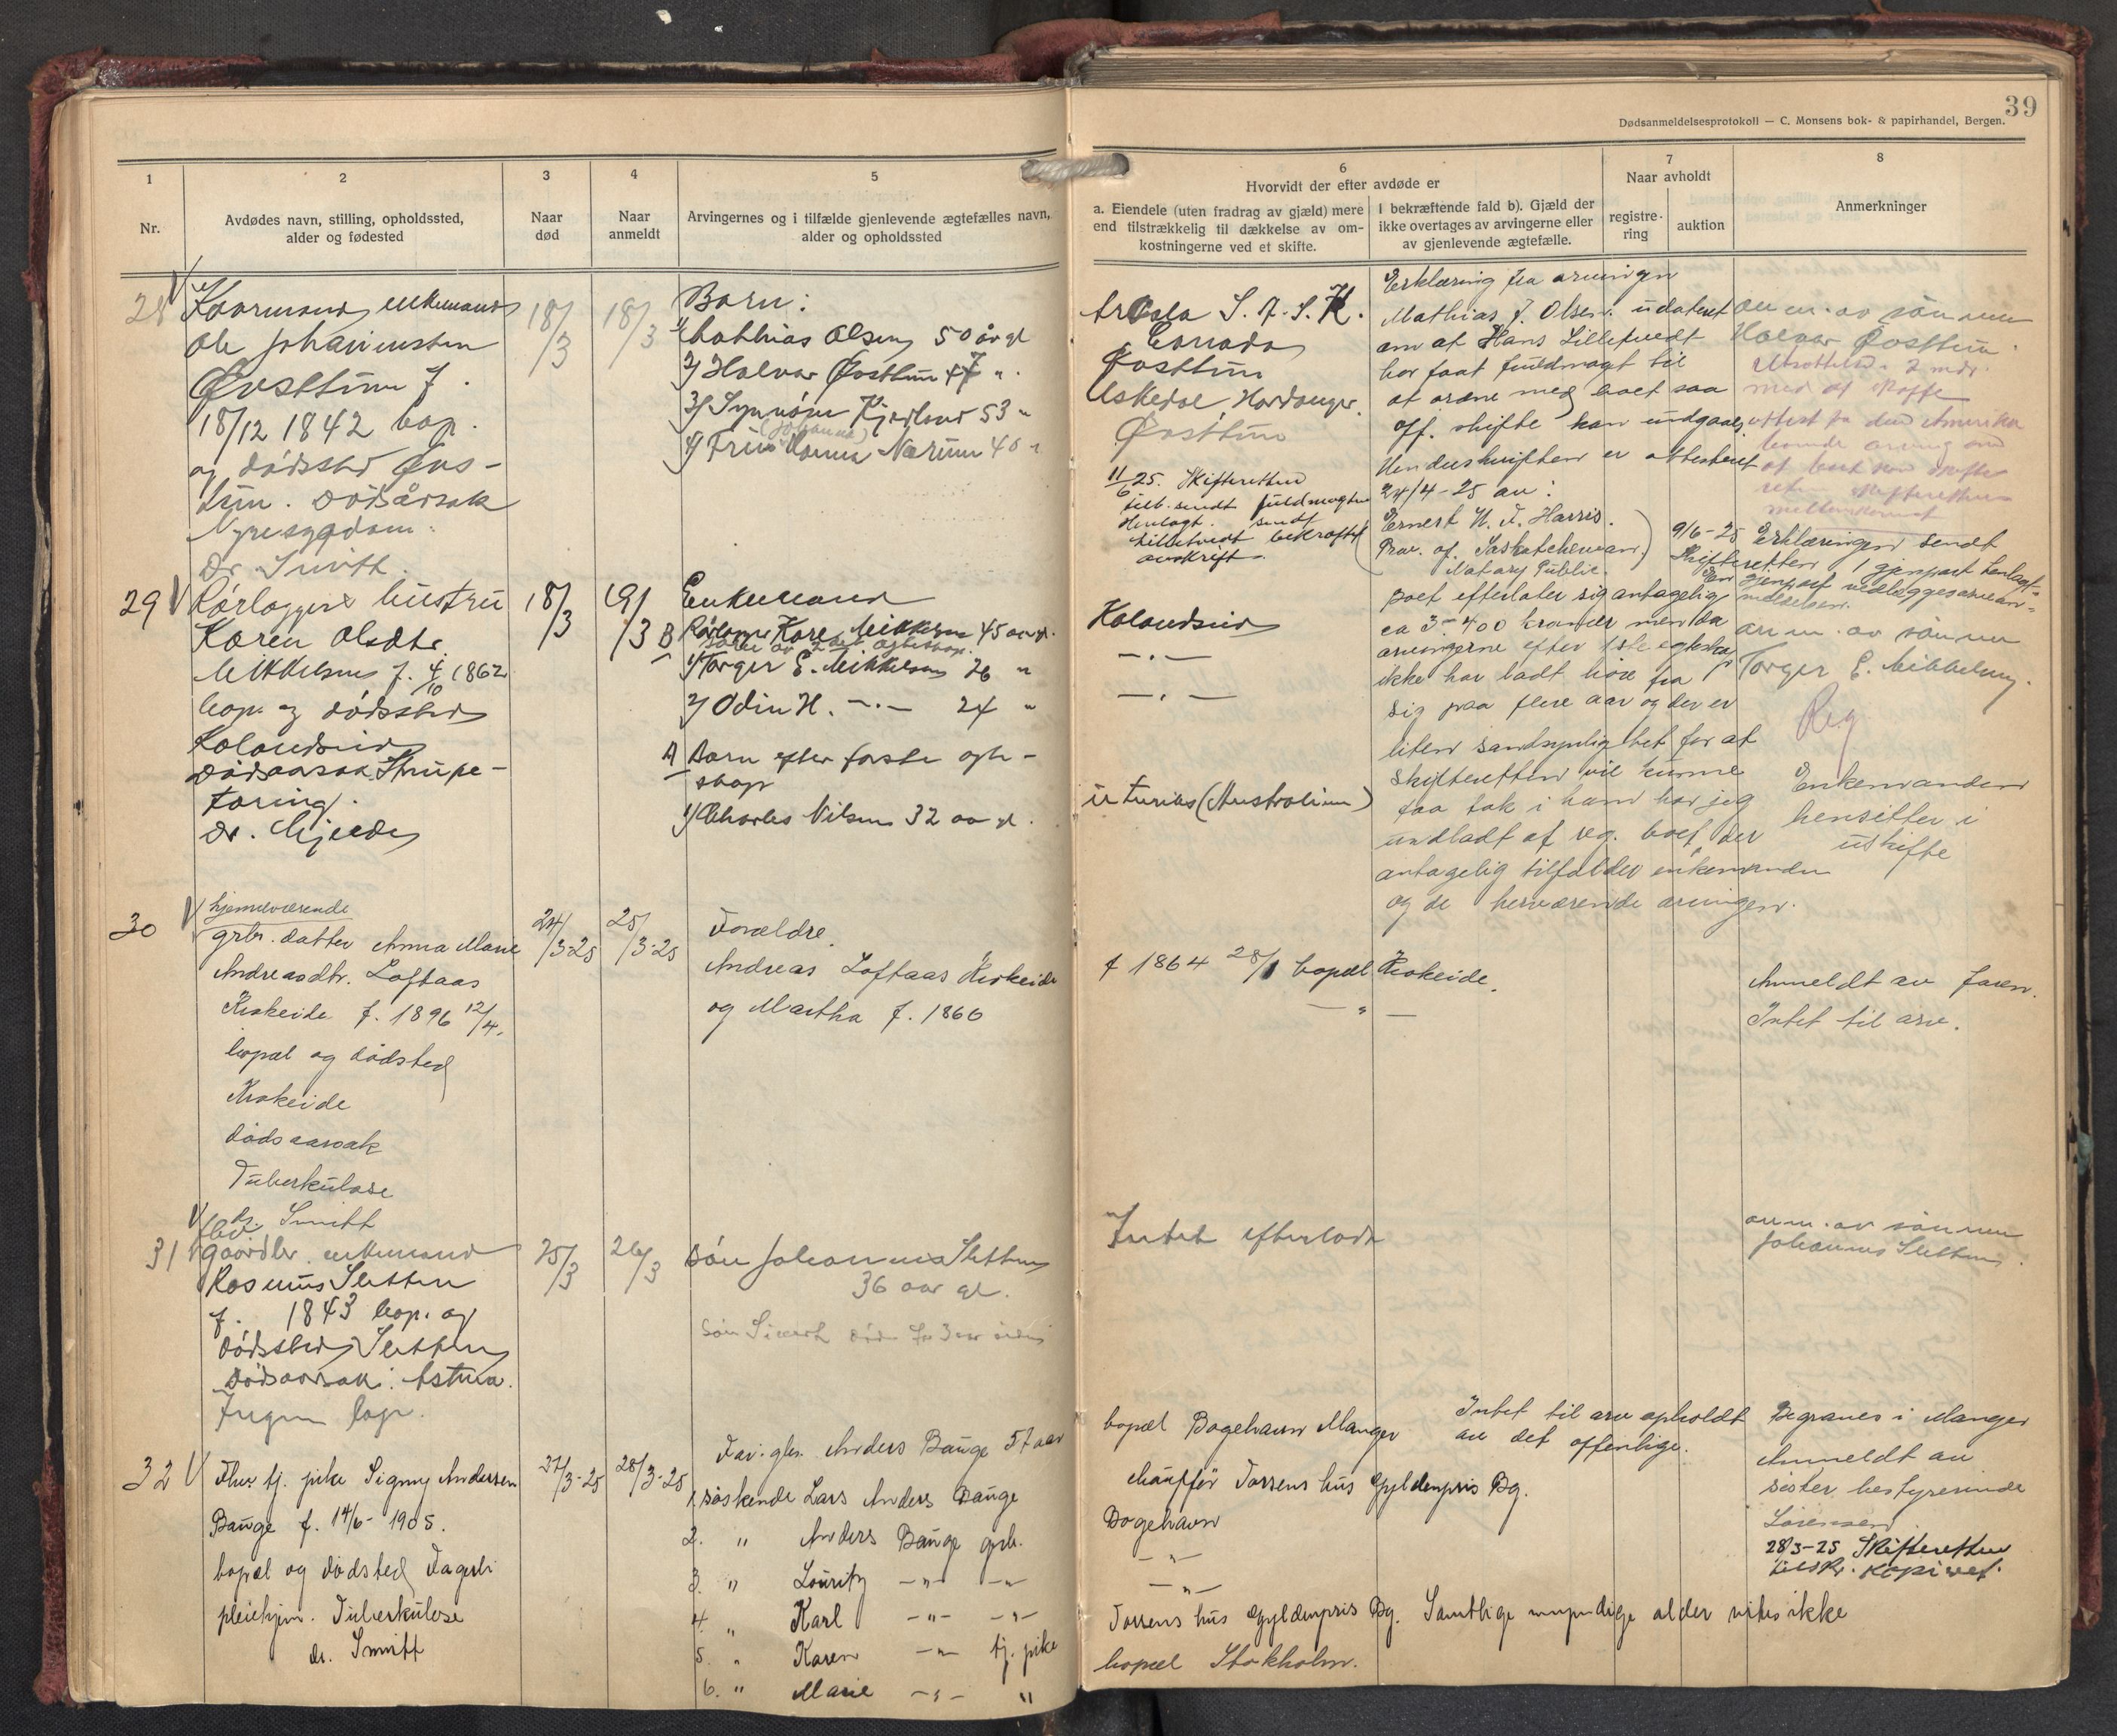 39
Dødsanmeldelsesprotokoll — C. Monsens bok- & papirhandel, Bergen.
1
Nr.
2
Avdødes navn, stilling, opholdssted,
alder og fødested
3
Naar
død
4
Naar
anmeldt
5
Arvingernes og i tilfælde gjenlevende ægtefælles navn,
alder og opholdssted
6
Hvorvidt der efter avdøde er
a. Eiendele (uten fradrag av gjæld) mere
end tilstrækkelig til dækkelse av om-
kostningerne ved et skifte.
I bekræftende fald b). Gjæld der
ikke overtages av arvingerne eller
av gjenlevende ægtefælle.
7
Naar avholdt
registre-
ring
auktion
8
Anmerkninger
28
Kaarmand enkemand
Ole Johannessen
Øvsttun f.
18/12 1842 bop.
og dødssted Øvs-
tun. Dødsårsak
Nyresygdom.
Dr. Smitt.
18/3
18/3
Barn:
1/ Mathias Olsen 50 år gl
2/ Halvor Øvsttun 47 "
3/ Synnøve Kjerland 53 "
(Johanna)
4/ Fru Hanna Nærum 40 "
Arcola S. A. S. K.
Canada
Øvsttun
Uskedal, Hardanger.
Øvsttun
11/6 25. Skifteretten
tilb. sendt fuldmagten
Henlagt. sendt
Lilletvedt bekræftet
avskrift.
Erklæring fra arvingen
Mathias J. Olsen udatert
om at Hans Lilletvedt
har faat fuldmagt til
at ordne med boet saa
off. skifte kan undgaaes.
Underskriften er attestert
24/4-25 av:
Ernest W. F. Harris.
(Prov. of Saskatchewan)
Notary Public.
anm. av sønnen
Halvor Øvsttun.
Utsættelse 2 mdr.
med at skaffe
attest fra den i Amerika
boende arving om
at
9/6-25 Erklæringen sendt
Skifteretten 1 gjenpart henlagt
En gjenpart vedlægges arvean-
meldelsen.
29
Rørlægger hustru
Karen Olsdtr.
Mikkelsen f. 4/10 1862
bop. og dødssted
Kolandseid
Dødsaarsak Strupe-
tæring.
Dr. Mjelde
18/3
19/3
Enkemand
B Rørlægger Kare Mikkelsen 45 aar gl.
Barn av 2det ægteskap.
1/ Torger E. Mikkelsen 26 "
2/ Odin H. —"— 24 "
A Barn efter første ægte-
skap
1/ Charles Nilsen 32 aar gl.
Kolandseid
—"—
—"—
(Australien)
Boet efterlater sig antagelig
ca 3- 400 kroner men da
arvingerne efter 1ste egteskap
ikke har ladt høre fra
sig paa flere aar og der er
liten sandsynlighet for at
skifteretten vil kunne
faa tak i ham har jeg
undladt at reg. boet der
antagelig tilfalder enkemanden
og de herværende arvinger.
anm. av sønnen
Torger E. Mikkelsen.
Reg
Enkemanden
hensitter i
uskifte
30
hjemmeværende
grbr. datter Anna Marie
Andreasdtr. Loftaas
Krokeide f. 1896 12/4.
bopæl og dødsted
Krokeide
dødsaarsak
Tuberkulose
dr. Smitt
24/3-25
25/3-25
Forældre
Andreas Loftaas Krokeide
og Martha f. 1860
f 1864 28/1 bopæl Krokeide.
—"—
Anmeldt av faren.
Intet til arv.
31
fhv.
gaardbr. enkemand
Rasmus Sletten
f. 1843 bop. og
dødssted Sletten
Dødsaarsak: Astma.
Ingen læge.
25/3
26/3
søn Johannes Sletten
36 aar gl.
Søn Sivert død for 3 aar siden
Intet efterladt
anm. av sønnen
Johannes Sletten.
32
Fhv. tj. pike Signy Andersen
Bauge f. 14/6-1905.
bopæl og dødsted Fagerli
pleiehjem. Tuberkulose
dr. Smitt
27/3-25
28/3-25
Far: gbr. Anders Bauge 57 aar
1. søskende Lars Anders Bauge
2. " Anders Bauge grb.
3. " Louritz —"— —"—
4. " Karl —"— —"—
5. " Karen —"— tj. pike
6. " Marie —"— "
bopæl Bøgehavn Manger
chauffør Torsens hus Gyldenpris Bg.
Bøgehavn
—"—
—"—
Torsens hus Gyldenpris Bg. Samtlige myndige alder vites ikke
bopæl Stokholm.
Intet til arv opholdt
av det offentlige.
Begraves i Manger
Anmeldt av
søster bestyrerinde
Sørensen
28/3-25 Skifteretten
tilskr. Kopi ved.